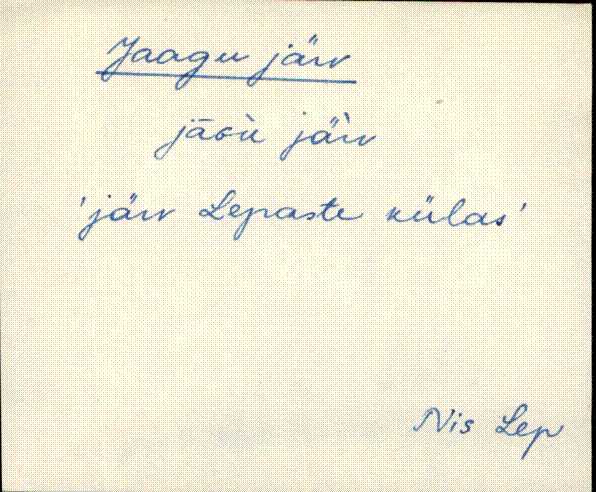 Jaagu järv
jāGù jäˋrv
'järv Lepaste külas'
Nis Lep